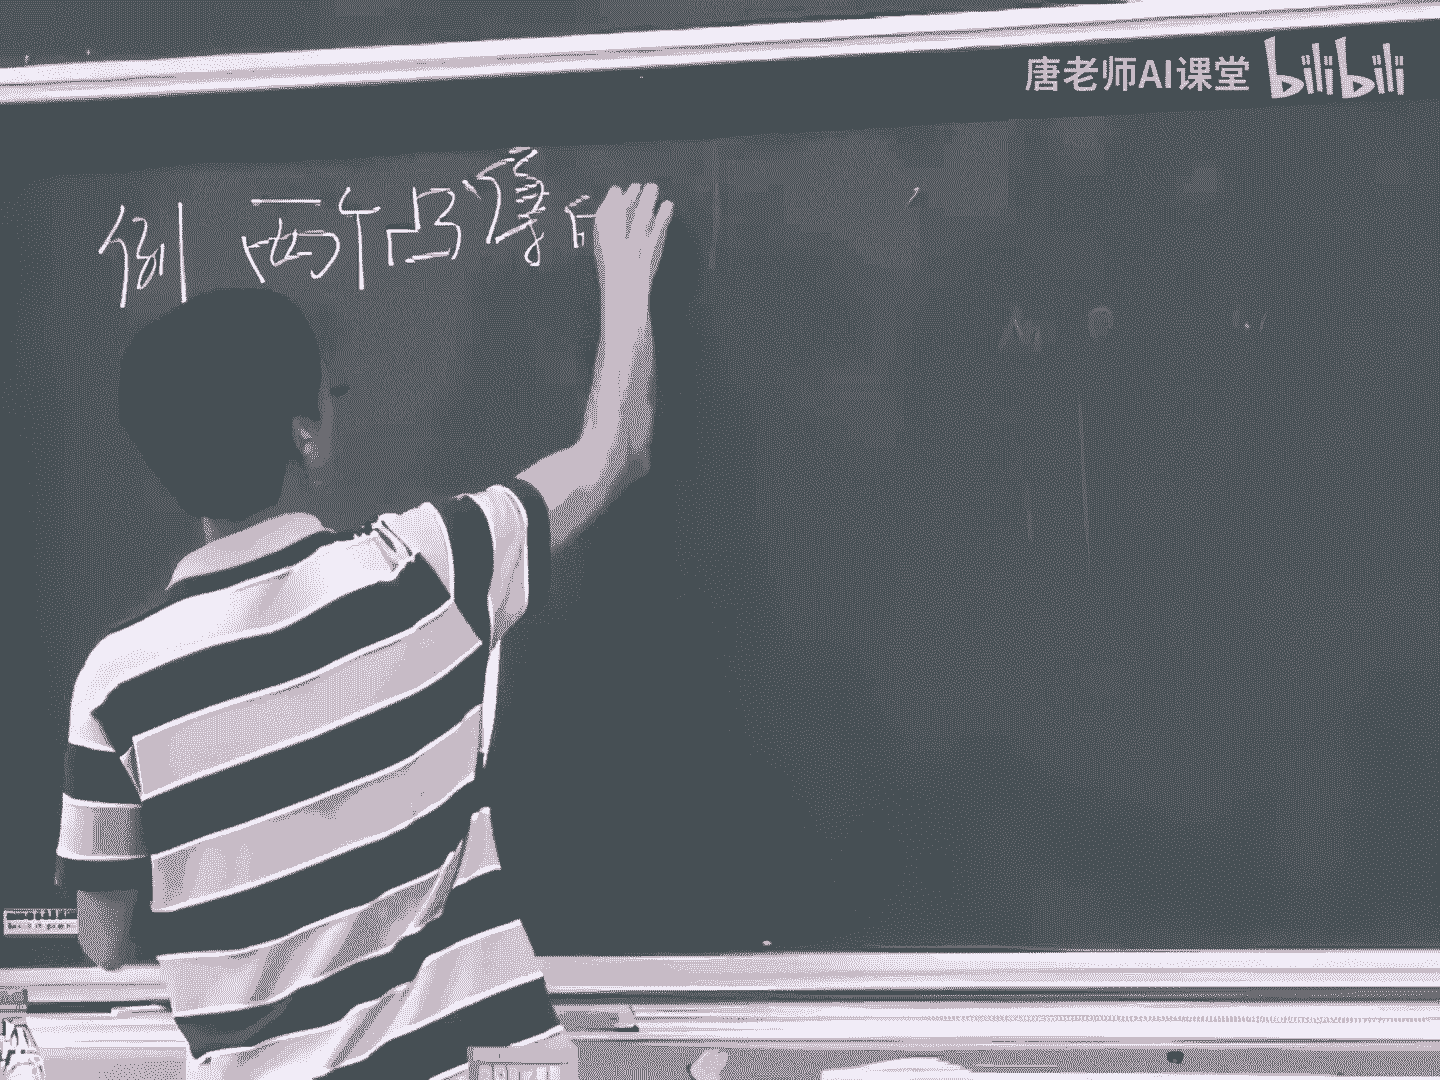 唐老师AI课堂 bilibili
例 两个凸薄的